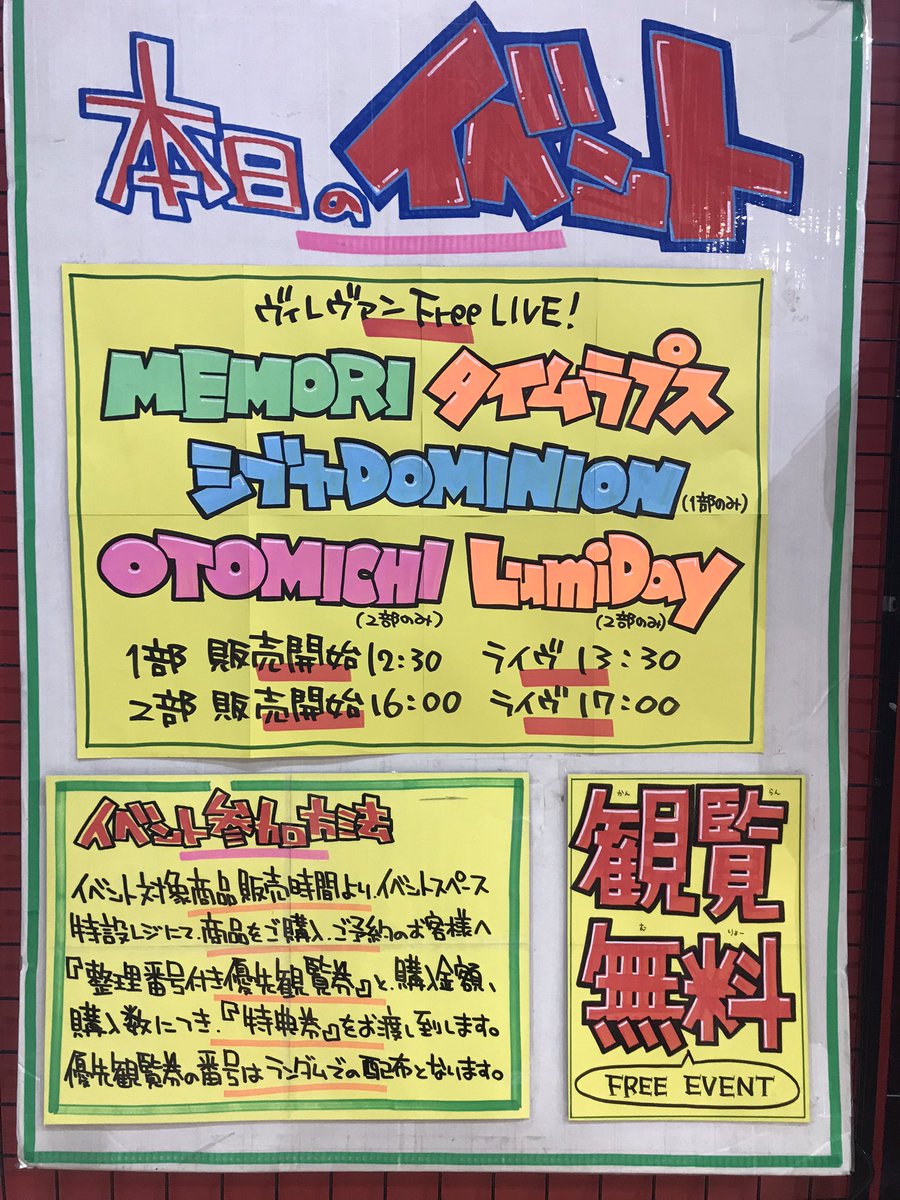 本日のイベント
ヴィレヴァン Free LIVE!
MEMORI タイムラプス
シブヤDOMINION(1部のみ)
OTOMICHI(2部のみ) LumiDay(2部のみ)
1部 販売開始12:30 ライヴ 13:30
2部 販売開始16:00 ライヴ 17:00
イベント参加方法
イベント対象商品販売時間より、イベントスペース
特設レジにて、商品をご購入、ご予約のお客様へ
『整理番号付き優先観覧券』と、購入金額、
購入数につき、『特典券』をお渡し致します。
優先観覧券の番号はランダムでの配布となります。
かん らん
観覧
む りょー
無料
FREE EVENT